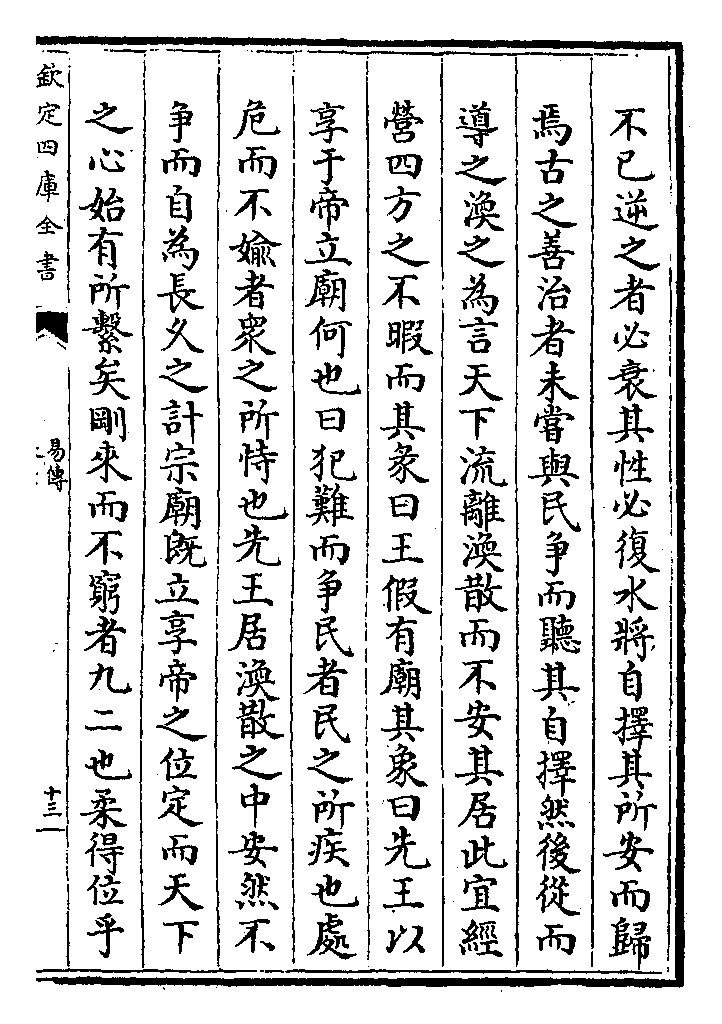 不已逆之者必衰其性必復水將自擇其所安而歸
焉古之善治者未嘗與民争而聽其自擇然後從而
導之渙之為言天下流離渙散而不安其居此宜經
營四方之不暇而其彖曰王假有廟其象曰先王以
享于帝立廟何也曰犯難而争民者民之所疾也處
危而不媮者衆之所恃也先王居渙散之中安然不
争而自為長久之計宗廟既立享帝之位定而天下
之心始有所繫矣剛來而不窮者九二也柔得位乎
欽定四庫全書
易傳
十三